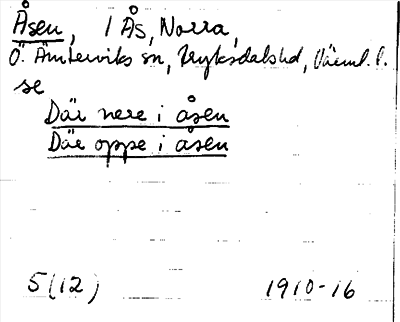 Åsen, 1 Ås, Norra,
Ö. Ämterviks sn, Fryksdals hd, Värml. l.
se
Där nere i åsen
Där oppe i åsen
5(12) 1910-16